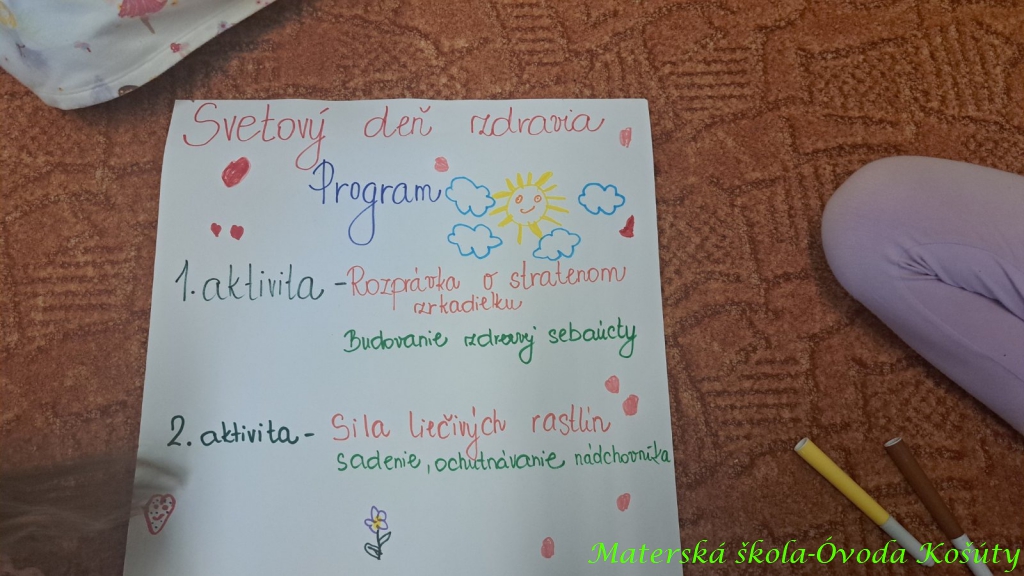 Svetový deň zdravia
Program
1. aktivita - Rozprávka o stratenom
zrkadielku
Budovanie zdravý sebaúcty
2. aktivita - Sila liečivých rastlín
sadenie, ochutnávanie nádchovníka
Materská škola-Óvoda Košúty